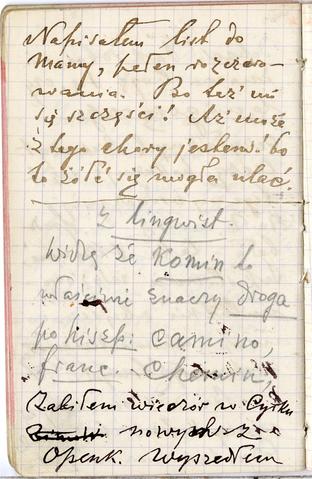 Napisałem list do
Mamy, pełen rozczaro-
wania. Bo też mi
się szczęści! Aż może
z tego chory jestem bo
to żółć się mogła ulać.
z lingwist.
Widzę że Komin to
właściwie znaczy droga
po hiszp: camino,
franc. Chemin,
Zabiłem wieczór w Cyrku
nowych z
Openk. wyszedłem